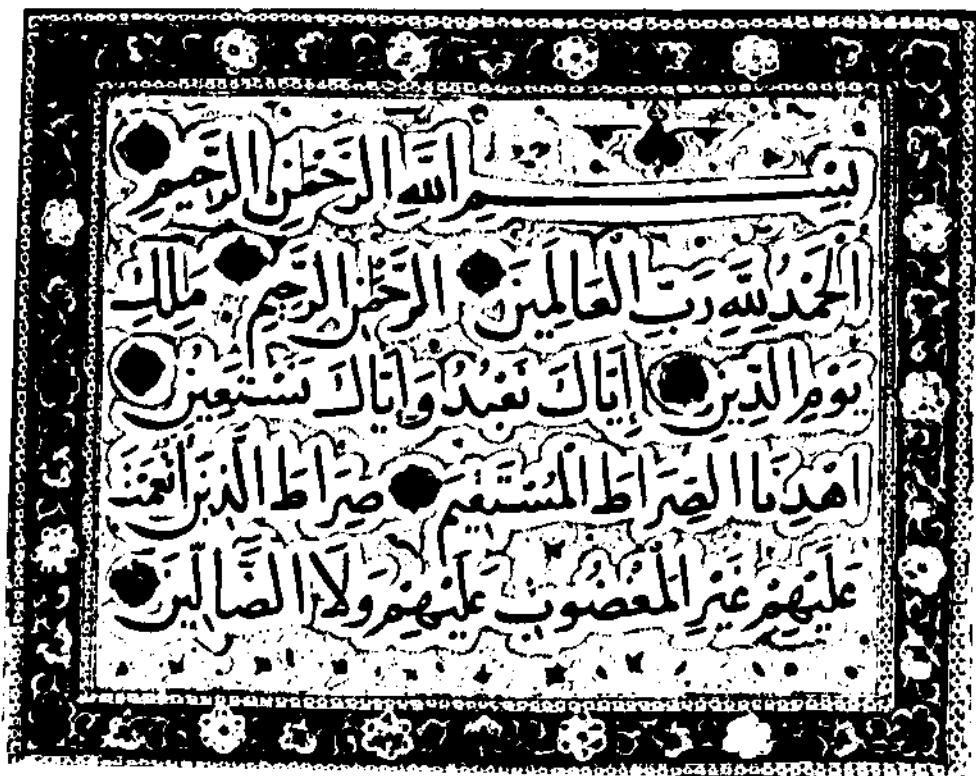 بِسْمِ اللَّهِ الرَّحْمَٰنِ الرَّحِيمِ
الْحَمْدُ لِلَّهِ رَبِّ الْعَالَمِينَ الرَّحْمَٰنِ الرَّحِيمِ مَلِكِ
يَوْمِ الدِّينِ إِيَّاكَ نَعْبُدُ وَإِيَّاكَ نَسْتَعِينُ
اهْدِنَا الصِّرَاطَ الْمُسْتَقِيمَ صِرَاطَ الَّذِينَ أَنْعَمْتَ
عَلَيْهِمْ غَيْرِ الْمَغْضُوبِ عَلَيْهِمْ وَلَا الضَّالِّينَ